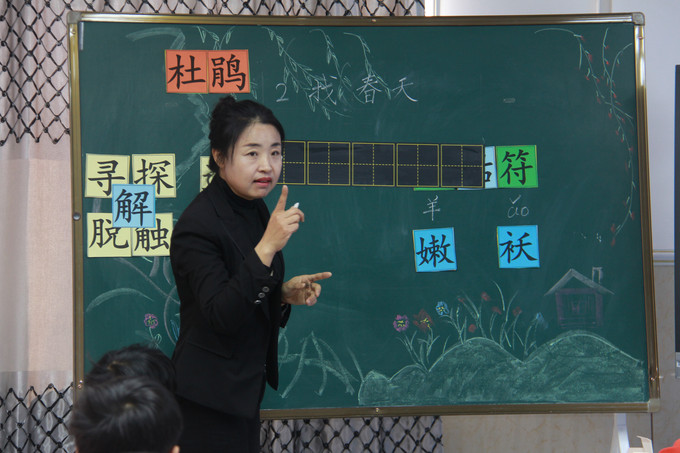 杜鹃
2 找春天
寻 探 符
解
脱 触 嫩 袄
ǎo